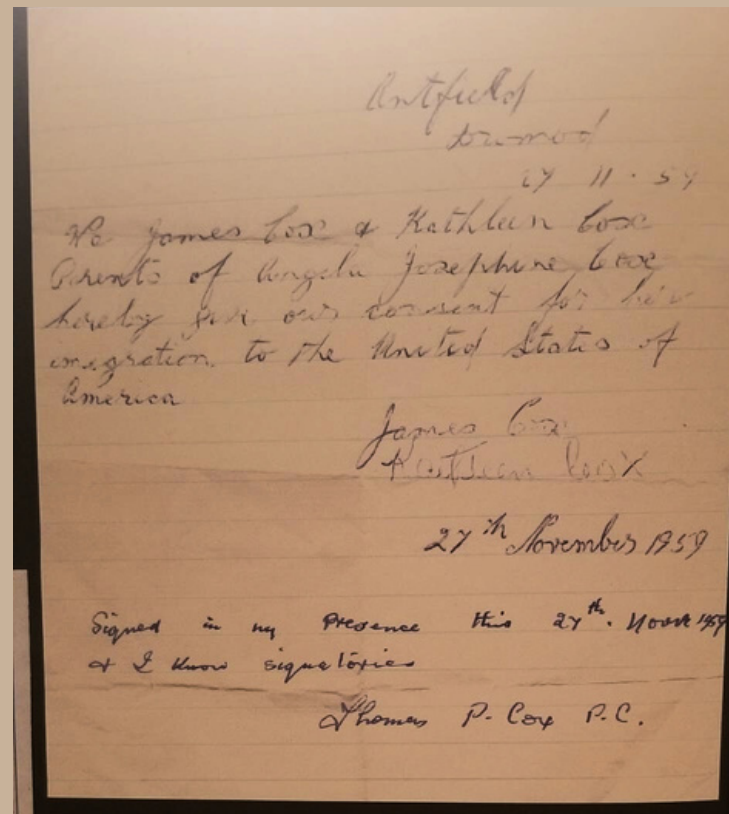 Antfield
Dromod
27 11 . 59
We James Cox & Kathleen Cox
Parents of Angela Josephine Cox
hereby give our consent for her
imigration to the United States of
America
James Cox
Kathleen Cox
27th November 1959
Signed in my Presence this 27th. Novr 1959
& I know signatories
Thomas P. Cox P.C.